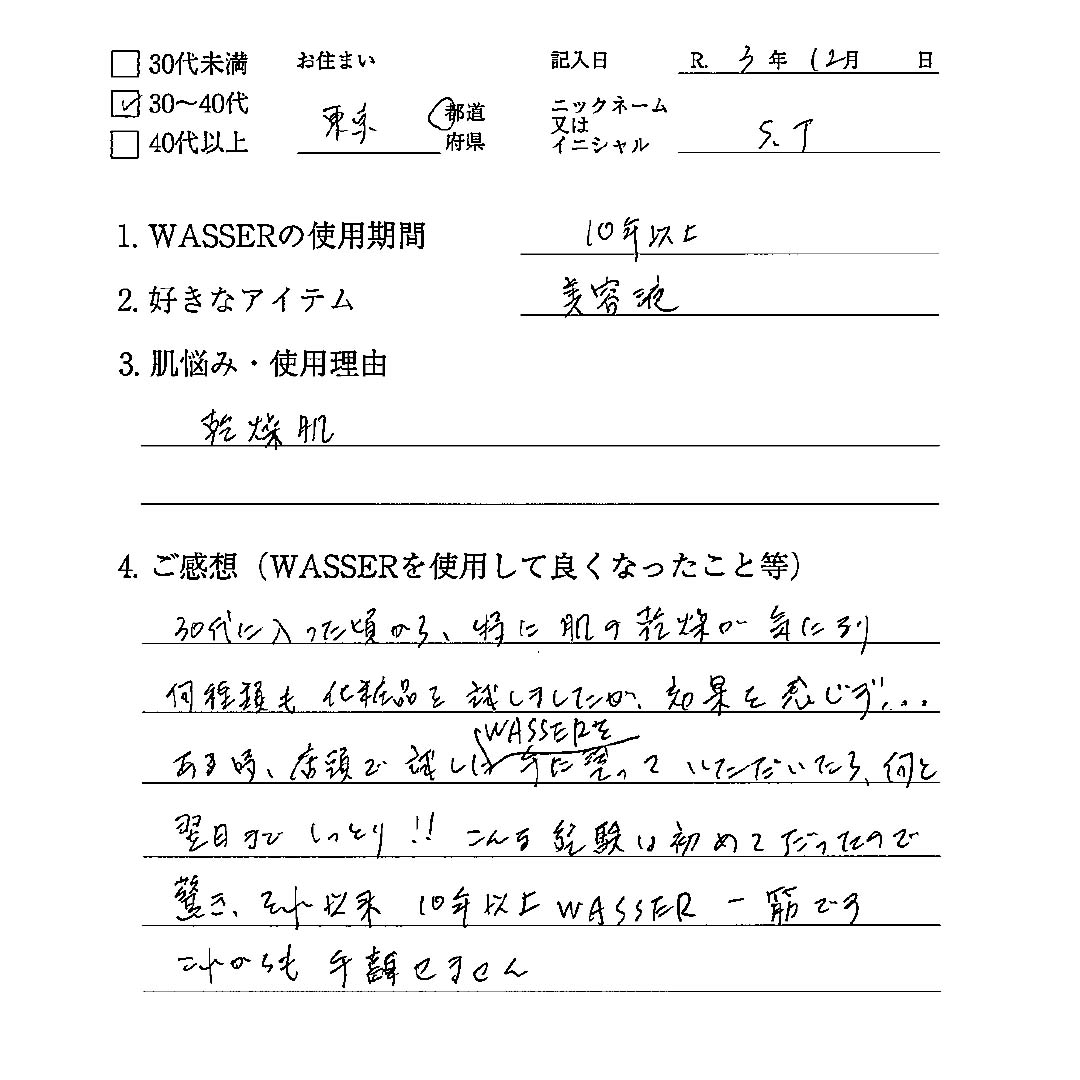 30代未満 お住まい 記入日 R. 3年 12月 日
30〜40代 東京 都道府県 ニックネーム又はイニシャル S.T
40代以上
1. WASSERの使用期間 10年以上
2. 好きなアイテム 美容液
3. 肌悩み・使用理由
乾燥肌
4. ご感想（WASSERを使用して良くなったこと等）
30代に入った頃から、特に肌の乾燥が気になり
何種類も化粧品を試しましたが、効果を感じず...
ある時、店頭で試しにWASSERを手に塗っていただいたら、何と
翌日までしっとり!! こんな経験は初めてだったので
驚き、それ以来10年以上WASSER一筋です
これからも手離せません